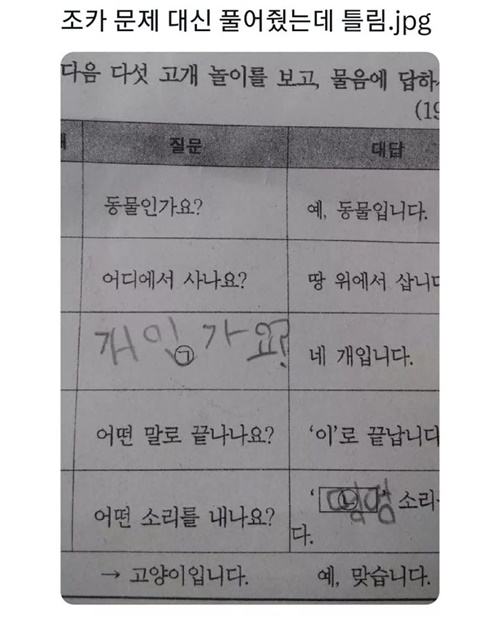 조카 문제 대신 풀어줬는데 틀림.jpg
다음 다섯 고개 놀이를 보고, 물음에 답하
(19
질문 대답
동물인가요? 예, 동물입니다.
어디에서 사나요? 땅 위에서 삽니다
개인가요? ㉠ 네 개입니다.
어떤 말로 끝나나요? ‘이’로 끝납니다
어떤 소리를 내나요? ‘ 멍멍 ㉡ ’ 소리
다.
→ 고양이입니다. 예, 맞습니다.